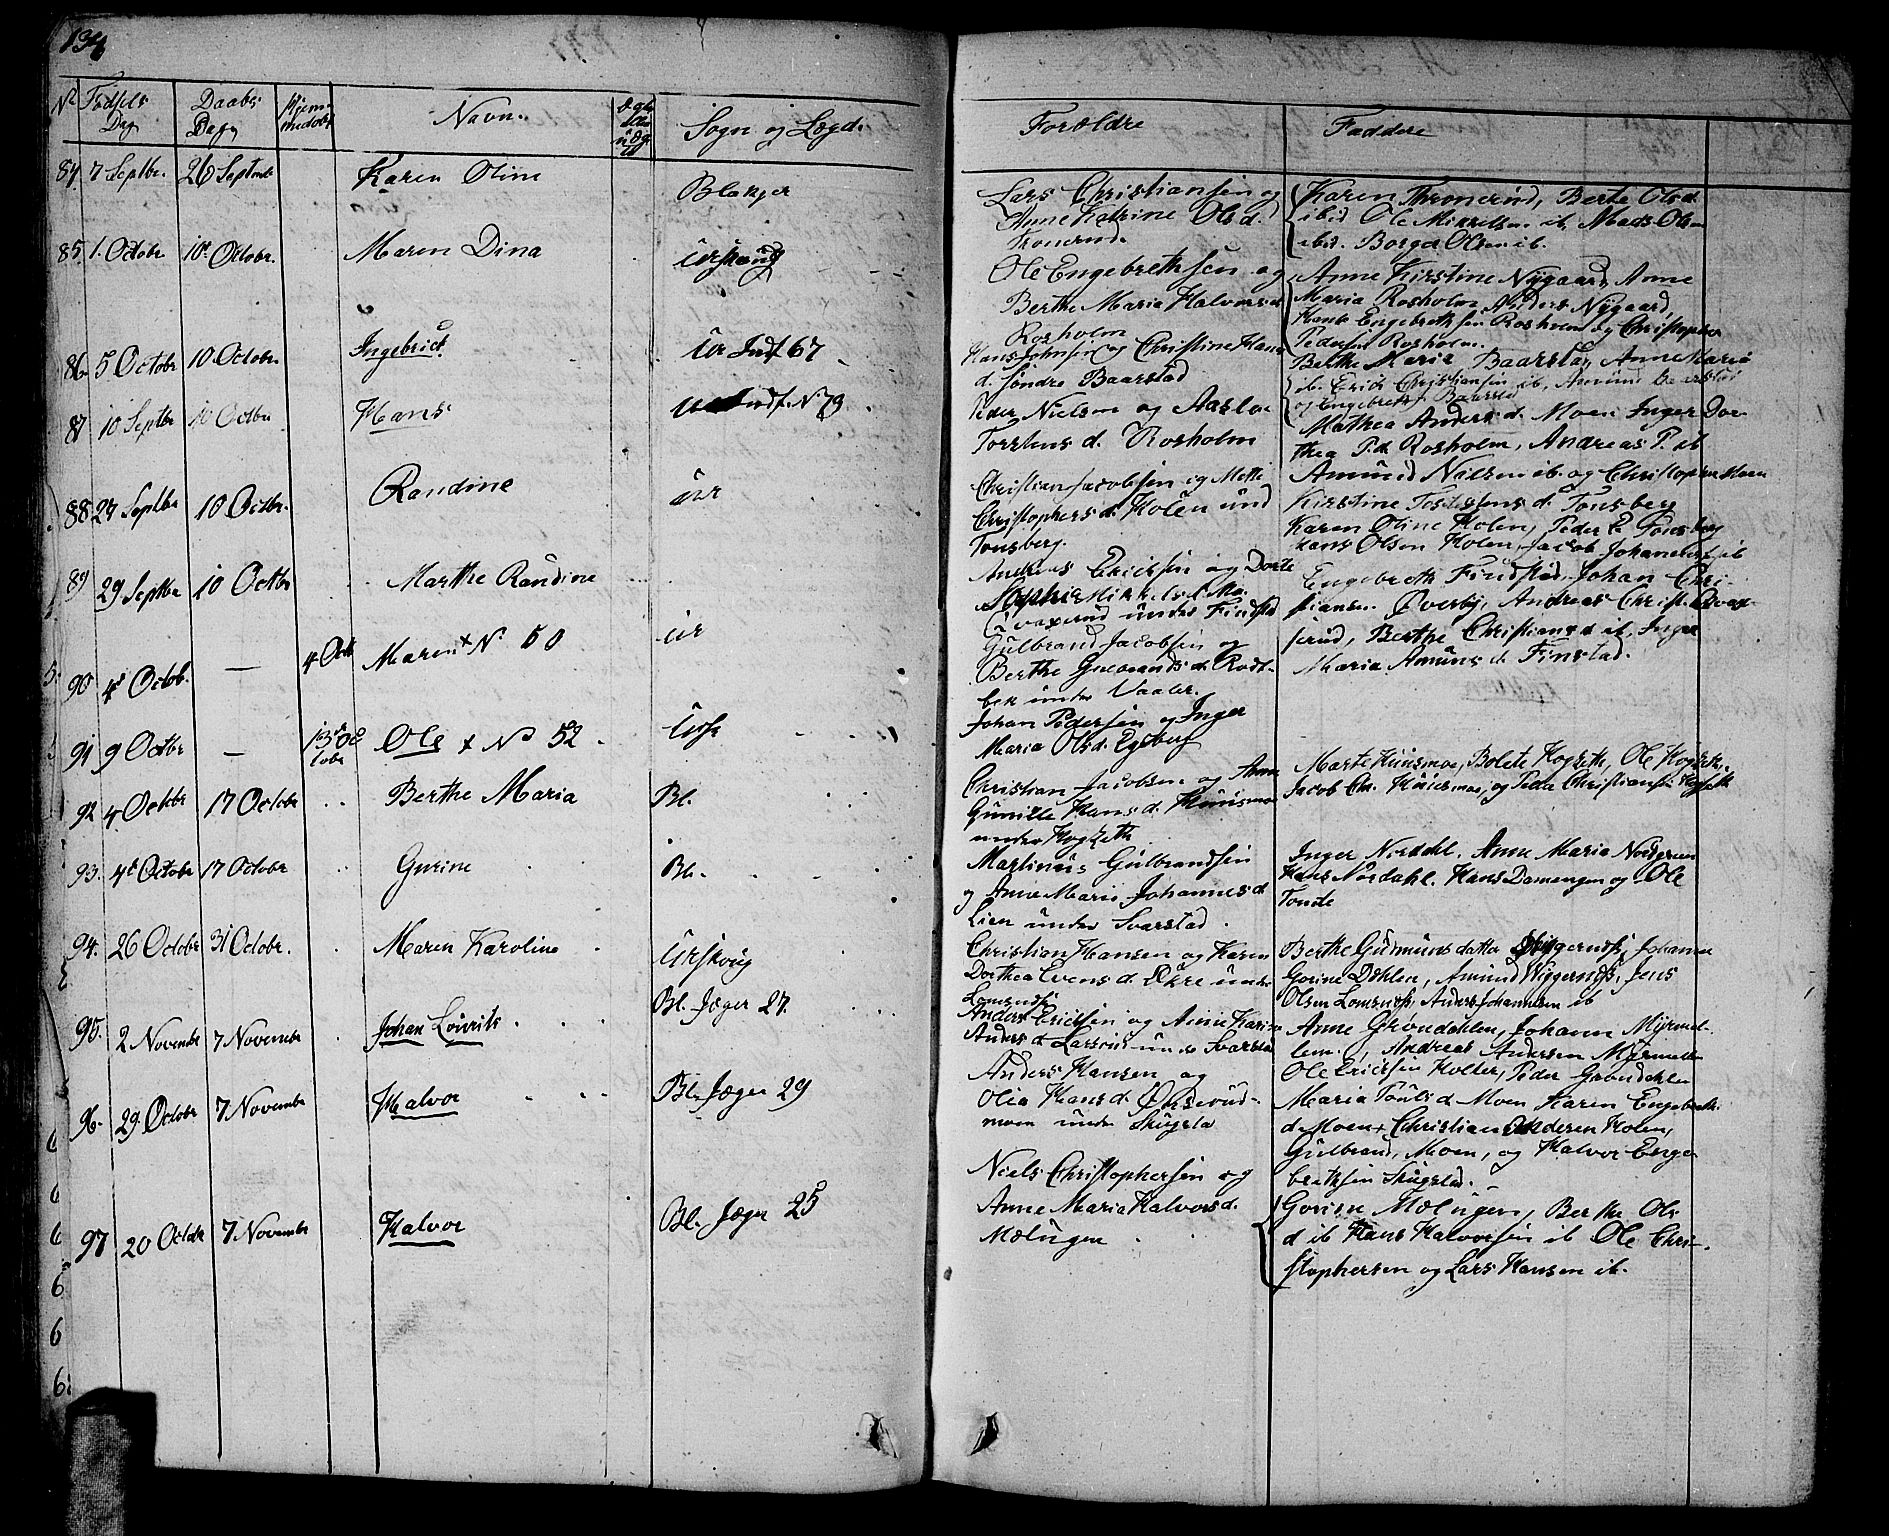 134
No Fødsels Dag Daabs Dag Hjemmedøbt Navn Sogn og Lægd.
Forældre Faddere
84 7 Septbr. 26 Septmb Karen Oline Blakjer
Lars Christiansen og
Anne Katrine Olsd.
Tronerud.
Karen Thronerud, Berte Olsd.
ibid Ole Mikkelsen ib. Mads Olsen
ibid. Borger Olsen ib.
85. 1. Octobr 10de Octobr. Maren Dina Urskoug
Ole Engebrethsen og
Berthe Maria Halvorsd
Rosholm
Anne Kirstine Nygaard, Anne
Maria Rosholm Anders Nygaard,
Hans Engebrethsen Rosholm og Christopher
Pedersen Rosholm.
86 5 Octobr 10. Octobr. Ingebrict. Ur Indf 67
Hans Johnsen og Christine Hans
d. søndre Baarstad
Berthe Maria Baarstad, Anne Maria
ib. Erich Christiansen ib, Amund Baarstad
og Engebreth Baarstad
87 10 Septbr 10 Octbr Hans Indf. N 79
Peder Nielsen og Aaslo
Torstens d. Rosholm
Mathea Anders d. Moen Inger Dor
thea P.d. Rosholm, Andreas P. ib
Amund Nielsen ib. og Christopher Moen
88. 27 Septbr 10 Octbr. Randine Ur
Christian Jacobsen og Mette
Christophers d. Holen und
Tonsberg.
Kirstine Torstens d. Tonsberg
Karen Oline Holen, Peder E Tonsberg
Hans Olsen Holen, Jacob Johannes ib
89 29 Septbr 10 Octbr Marthe Randine
Andreas Ericksen og Dorte
Sophie Mikkelsd
under Finstad
Engebreth Findstad, Johan Chri-
stiansen Øverby, Andreas Christ.
serud, Berthe Christians d ib, Inger
Maria Amuns d. Finstad.
90 4de Octob. — 4 Octb Maren x No 50 Ur
Gulbrand Jacobsen og
Berthe Gulbrands d. Rodt-
bek under Vaaler.
91 9 Octbr — 13de Oc
tobr Ole x No 52 Ursk
Johan Pedersen og Inger
Maria Olsd. Egeberg
92 4 Octobr 17 Octobr Berthe Maria Bl.
Christian Jacobsen og Anne
Gunille Hans d. Huusmoe
under Hogseth
Marte Huusmoe, Bolete Hogseth, Ole Hogseth,
Jacob Chr. Huusmoe, og Peder Christiansen Hogseth
93. 4de Octobr 17 Octobr Gurine Bl.
Martinus Gulbrandsen
og Anne Marie Johannes d.
Lien under Svarstad.
Inger Nordahl. Anne Maria Nordgreen
Hans Nordahl. Hans Damengen og Ole
Tonde
94. 26 Octobr 31 Octobr. Maren Karoline Urskoug
Christian Hansen og Karen
Dorthea Evens d. Økre under
Lomsnds
Berthe Gudmuns datter Wiggernds, Johanne
Gorine Dahlen, Amund Wiggernds, Jens
Olsen Lomsnds, Anders Johannesen ib
95. 2 Novembr 7 Novembr Johan Lovrits Bl. Jæger 27.
Anders Ericksen og Anne Karine
Anders d Larsrud under Svarstad
Anne Grøndahlen, Johann Myrmel-
lem, Andreas Andersen Myrmellem
Ole Ericksen Holter, Peder Grøndahlen
96. 29. Octobr 7 Novembr Halvor Bl. Jæger 29
Anders Hansen og
Olia Hans d. Ørserud-
moen under Skugsta
Maria Touls d Moen Karen Engebreths
d. Moen, Christian Andersen Holen,
Gulbrand, Moen, og Halvor Enge
brethsen Skugstad.
97 20 Octobr 7 Novembr Halvor Bl. Jæger 25
Niels Christophersen og
Anne Maria Halvorsd.
Mælungen
Gorine Mælungen, Berthe Ols
d ib Hans Halvorsen ib Ole Chri-
stophersen og Lars Hansen ib.